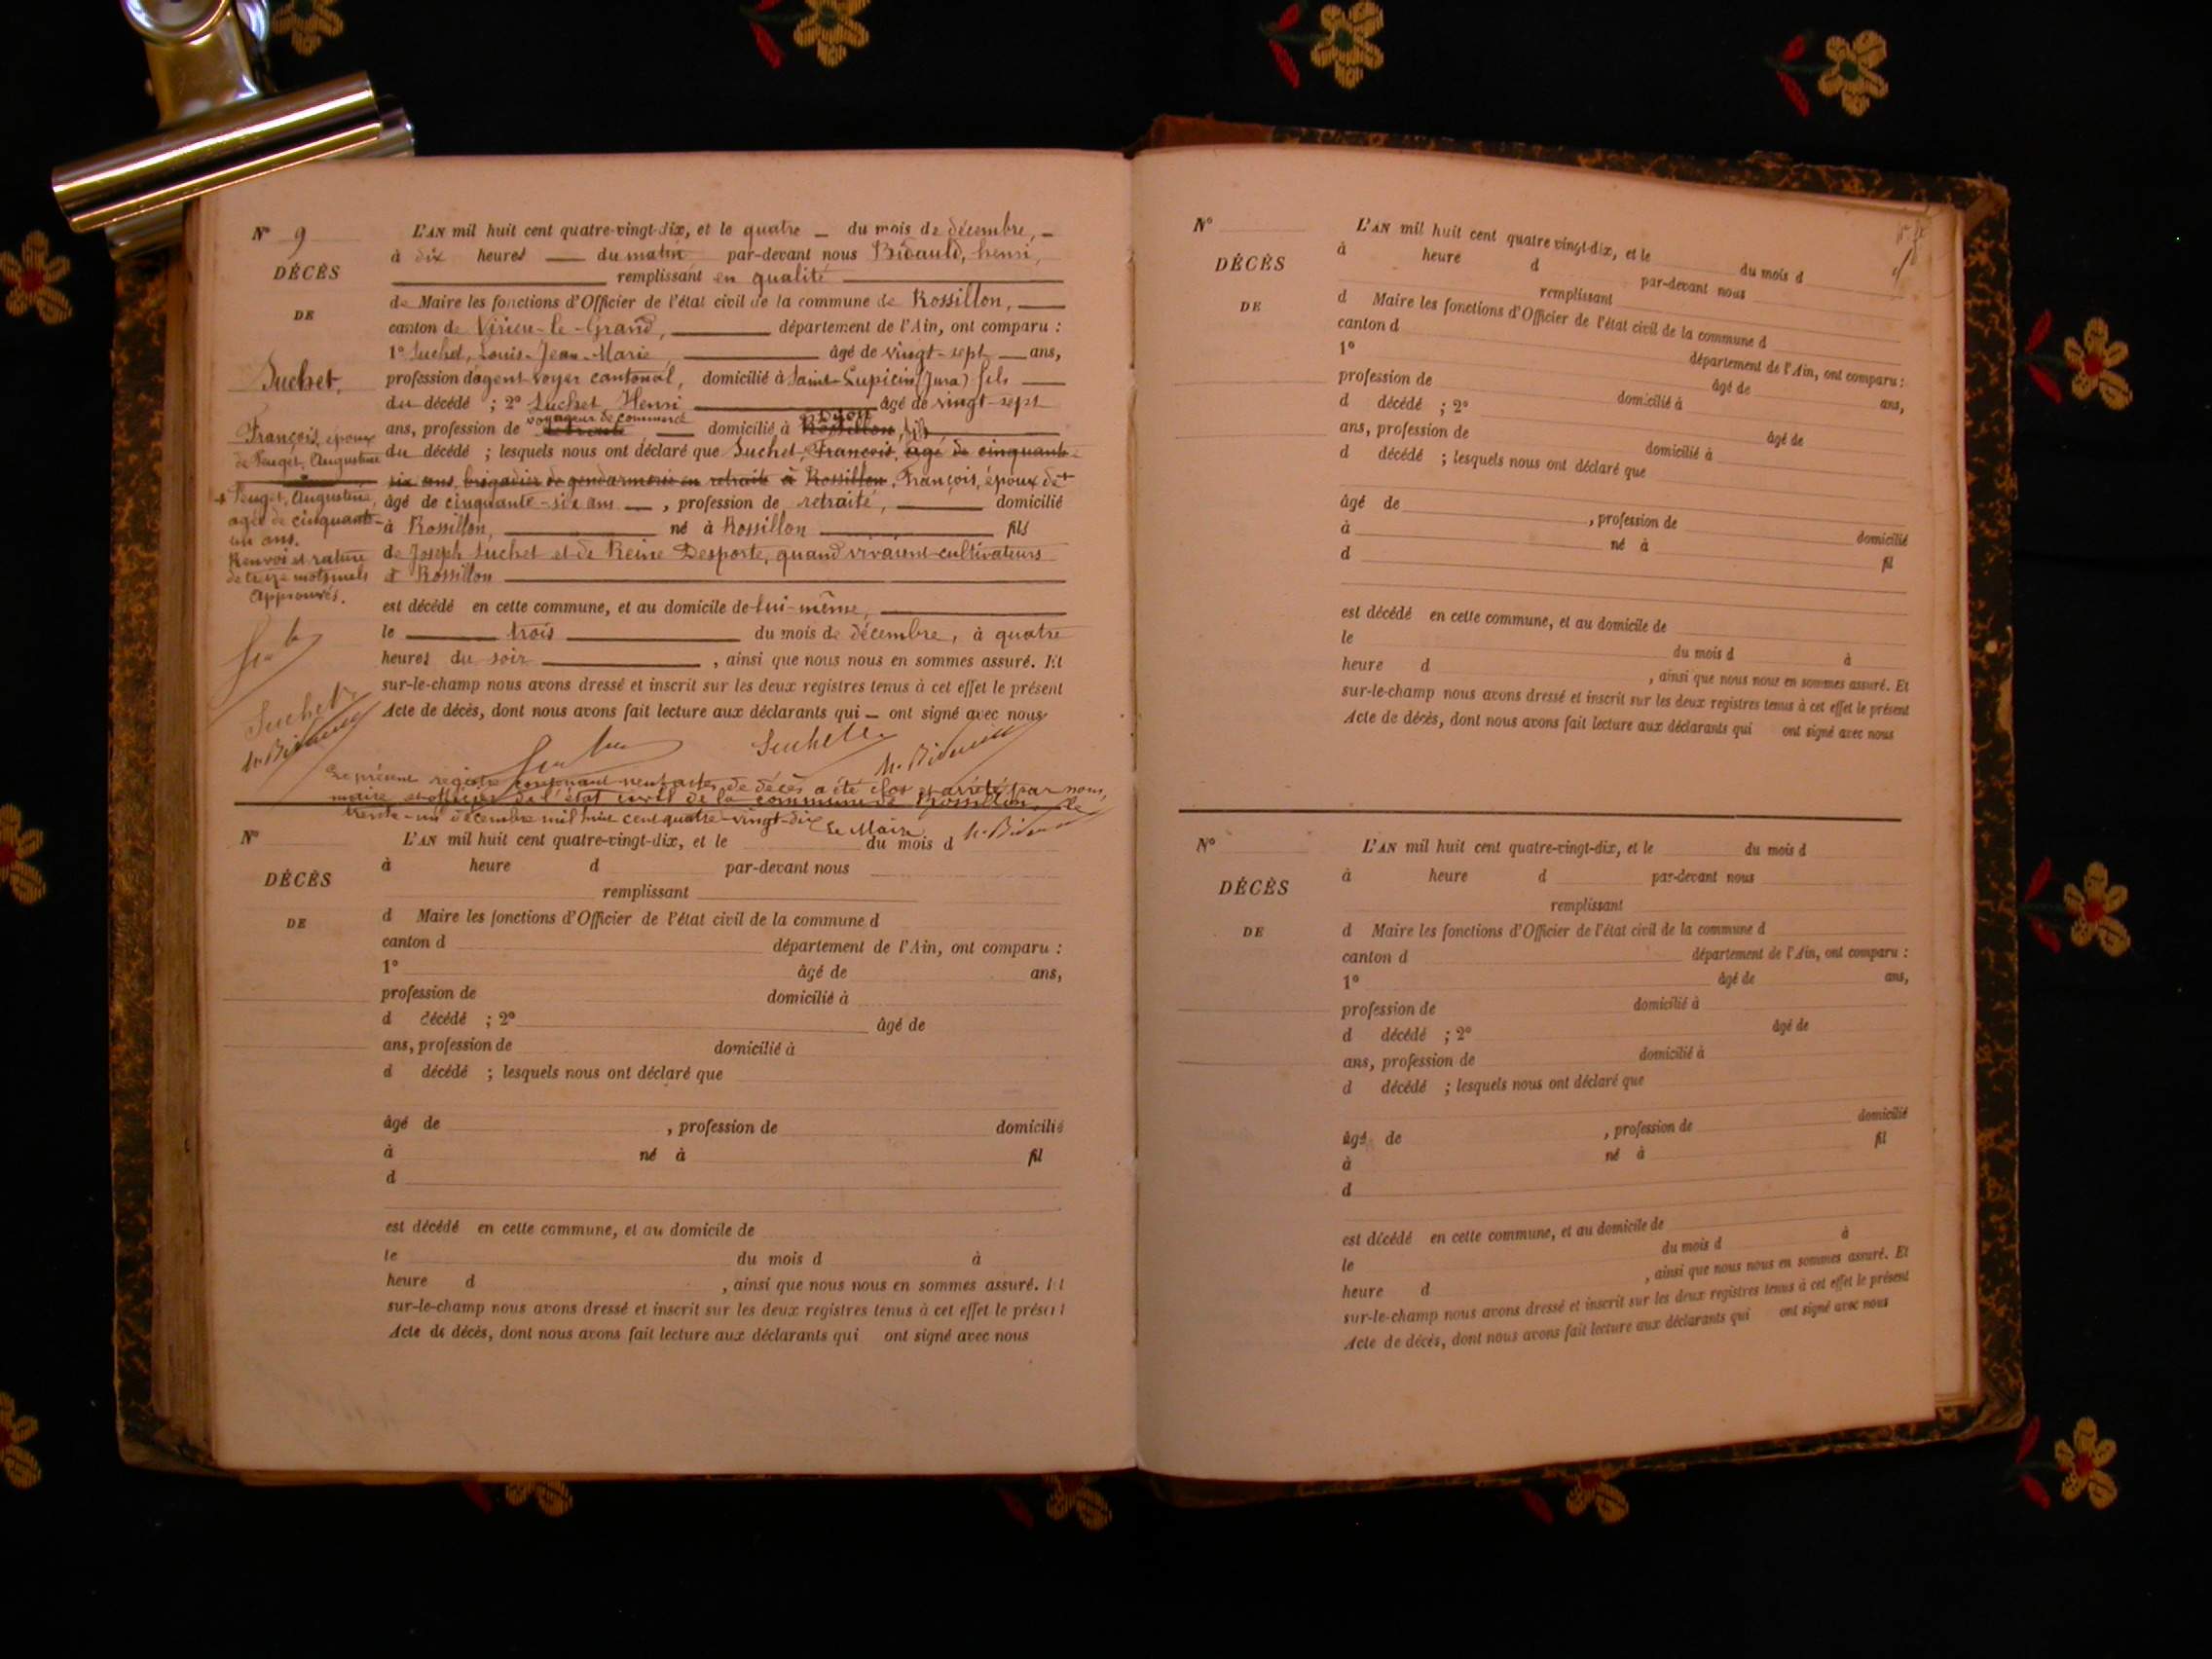 N° 9
DÉCÈS
DE
Suchet,
François, époux
de Peuget, Augustine
+ Peuget, Augustine,
agée de cinquante-
un ans.
Renvoi et rature
de treize mots nuls
approuvés.
Suchet
h. Bidauld
L'AN mil huit cent quatre-vingt-dix, et le quatre du mois de décembre,
à dix heures du matin par-devant nous Bidauld, henri,
remplissant en qualité
de Maire les fonctions d'Officier de l'état civil de la commune de Rossillon,
canton de Virieu-le-Grand, département de l'Ain, ont comparu :
1° Suchet, Louis-Jean-Marie, âgé de vingt-sept ans,
profession d'agent-voyer cantonal, domicilié à Saint-Lupicin (Jura) fils
du décédé ; 2° Suchet Henri âgé de vingt-sept
voyageur de commerce
ans, profession de retraité domicilié à Rossillon, fils
du décédé ; lesquels nous ont déclaré que Suchet, François, âgé de cinquante-
six ans, brigadier de gendarmerie en retraite à Rossillon, François, époux de +
âgé de cinquante-six ans, profession de retraité, domicilié
à Rossillon, né à Rossillon fils
de Joseph Suchet et de Reine Desporte, quand vivaient cultivateurs
à Rossillon
est décédé en cette commune, et au domicile de lui-même,
le trois du mois de décembre, à quatre
heures du soir, ainsi que nous nous en sommes assuré. Et
sur-le-champ nous avons dressé et inscrit sur les deux registres tenus à cet effet le présent
Acte de décès, dont nous avons fait lecture aux déclarants qui ont signé avec nous
Suchet h. Bidauld
Le présent registre contenant neuf actes de décès a été clos et arrêté par nous,
maire et officier de l'état civil de la commune de Rossillon, le
trente-un décembre mil huit cent quatre-vingt-dix Le Maire h. Bidauld
N°
DÉCÈS
DE
L'AN mil huit cent quatre-vingt-dix, et le du mois d
à heure d par-devant nous
remplissant
d Maire les fonctions d'Officier de l'état civil de la commune d
canton d département de l'Ain, ont comparu :
1° âgé de ans,
profession de domicilié à
d décédé ; 2° âgé de
ans, profession de domicilié à
d décédé ; lesquels nous ont déclaré que
âgé de , profession de domicilié
à né à fil
d
est décédé en cette commune, et au domicile de
le du mois d à
heure d , ainsi que nous nous en sommes assuré. Et
sur-le-champ nous avons dressé et inscrit sur les deux registres tenus à cet effet le présent
Acte de décès, dont nous avons fait lecture aux déclarants qui ont signé avec nous
N°
DÉCÈS
DE
L'AN mil huit cent quatre-vingt-dix, et le du mois d
à heure d par-devant nous
remplissant
d Maire les fonctions d'Officier de l'état civil de la commune d
canton d département de l'Ain, ont comparu :
1° âgé de ans,
profession de domicilié à
d décédé ; 2° âgé de
ans, profession de domicilié à
d décédé ; lesquels nous ont déclaré que
âgé de , profession de domicilié
à né à fil
d
est décédé en cette commune, et au domicile de
le du mois d à
heure d , ainsi que nous nous en sommes assuré. Et
sur-le-champ nous avons dressé et inscrit sur les deux registres tenus à cet effet le présent
Acte de décès, dont nous avons fait lecture aux déclarants qui ont signé avec nous
N°
DÉCÈS
DE
L'AN mil huit cent quatre-vingt-dix, et le du mois d
à heure d par-devant nous
remplissant
d Maire les fonctions d'Officier de l'état civil de la commune d
canton d département de l'Ain, ont comparu :
1° âgé de ans,
profession de domicilié à
d décédé ; 2° âgé de
ans, profession de domicilié à
d décédé ; lesquels nous ont déclaré que
âgé de , profession de domicilié
à né à fil
d
est décédé en cette commune, et au domicile de
le du mois d à
heure d , ainsi que nous nous en sommes assuré. Et
sur-le-champ nous avons dressé et inscrit sur les deux registres tenus à cet effet le présent
Acte de décès, dont nous avons fait lecture aux déclarants qui ont signé avec nous